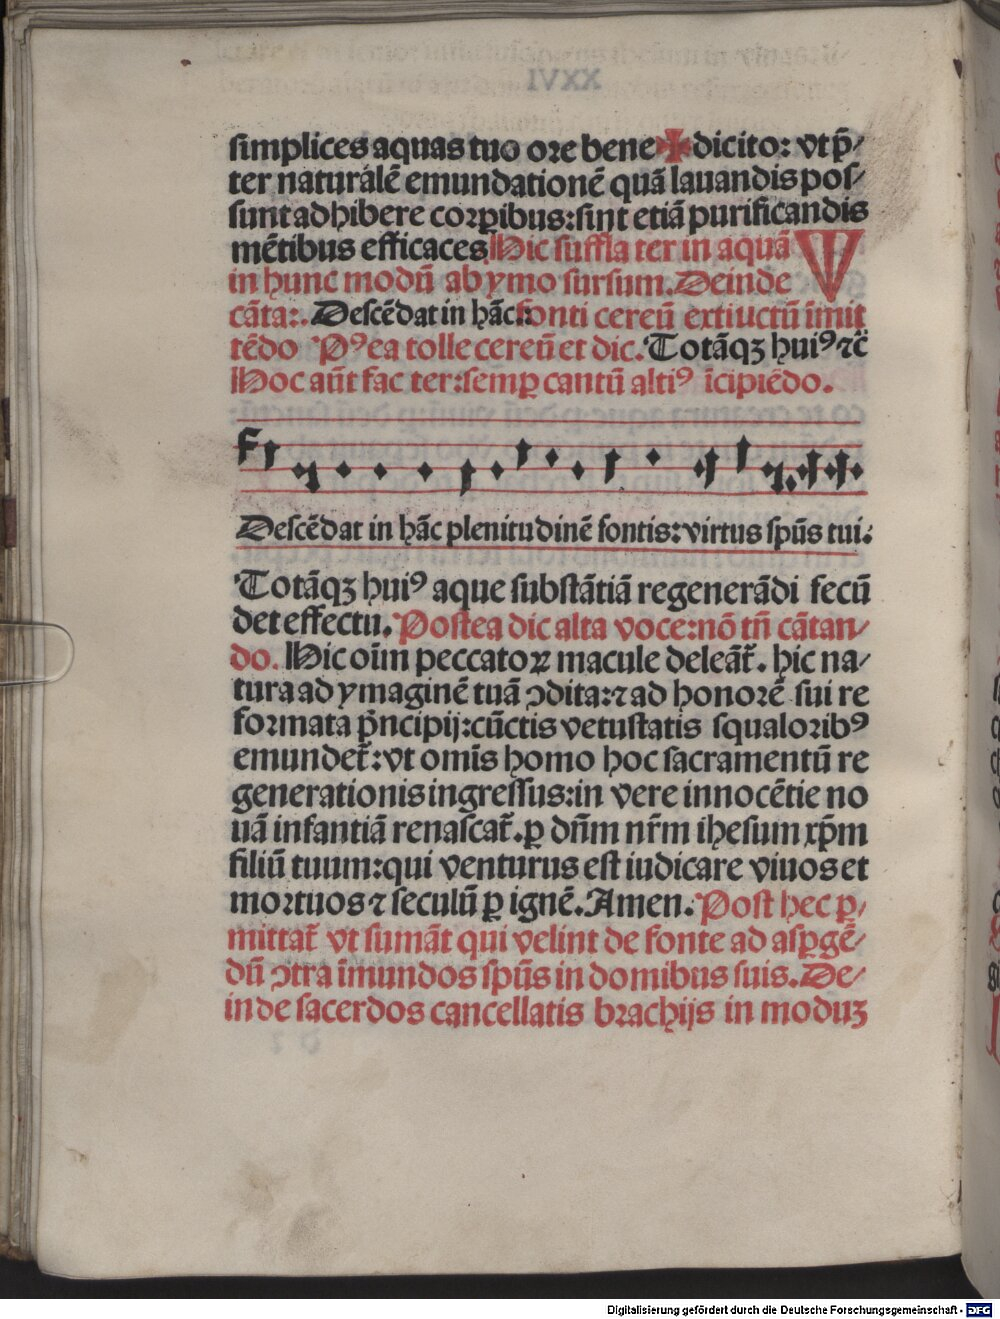 simplices aquas tuo ore bene✠dicito: vt p̄⸗
ter naturalē emundationē quā lauandis pos⸗
sunt adhibere corꝑibus: sint etiā purificandis
mētibus efficaces. Hic suffla ter in aquā
in hunc modū ab ymo sursum. Deinde
cāta:. Descēdat in hāc: fonti cereū extiuctū īmit
tēdo Pꝰea tolle cereū et dic. Totāqꝫ huiꝰ ⁊c̄
Hoc aūt fac ter: semꝑ cantū altiꝰ īcipiēdo.
Descēdat in hāc plenitudinē fontis: virtus spūs tui:
Totāqꝫ huiꝰ aque substātiā regenerādi fecū
det effectu. Postea dic alta voce: nō tn̄ cātan⸗
do. Hic oīm peccatoꝝ macule deleāt̄. hic na⸗
tura ad ymaginē tuā ↄdita: ⁊ ad honorē sui re
formata p̄ncipij: cūctis vetustatis squaloribꝰ
emundet̄: vt omīs homo hoc sacramentū re
generationis ingressus: in vere innocētie no
uā infantiā renascat̄. ꝑ dn̄m nr̄m ihesum xp̄m
filiū tuum: qui venturus est iudicare viuos et
mortuos ⁊ seculū ꝑ ignē. Amen. Post hec ꝑ⸗
mittat̄ vt sumāt qui velint de fonte ad asꝑgē⸗
dū ↄtra īmundos spūs in domibus suis. De⸗
inde sacerdos cancellatis brachijs in moduꝫ
Digitalisierung gefördert durch die Deutsche Forschungsgemeinschaft - DFG